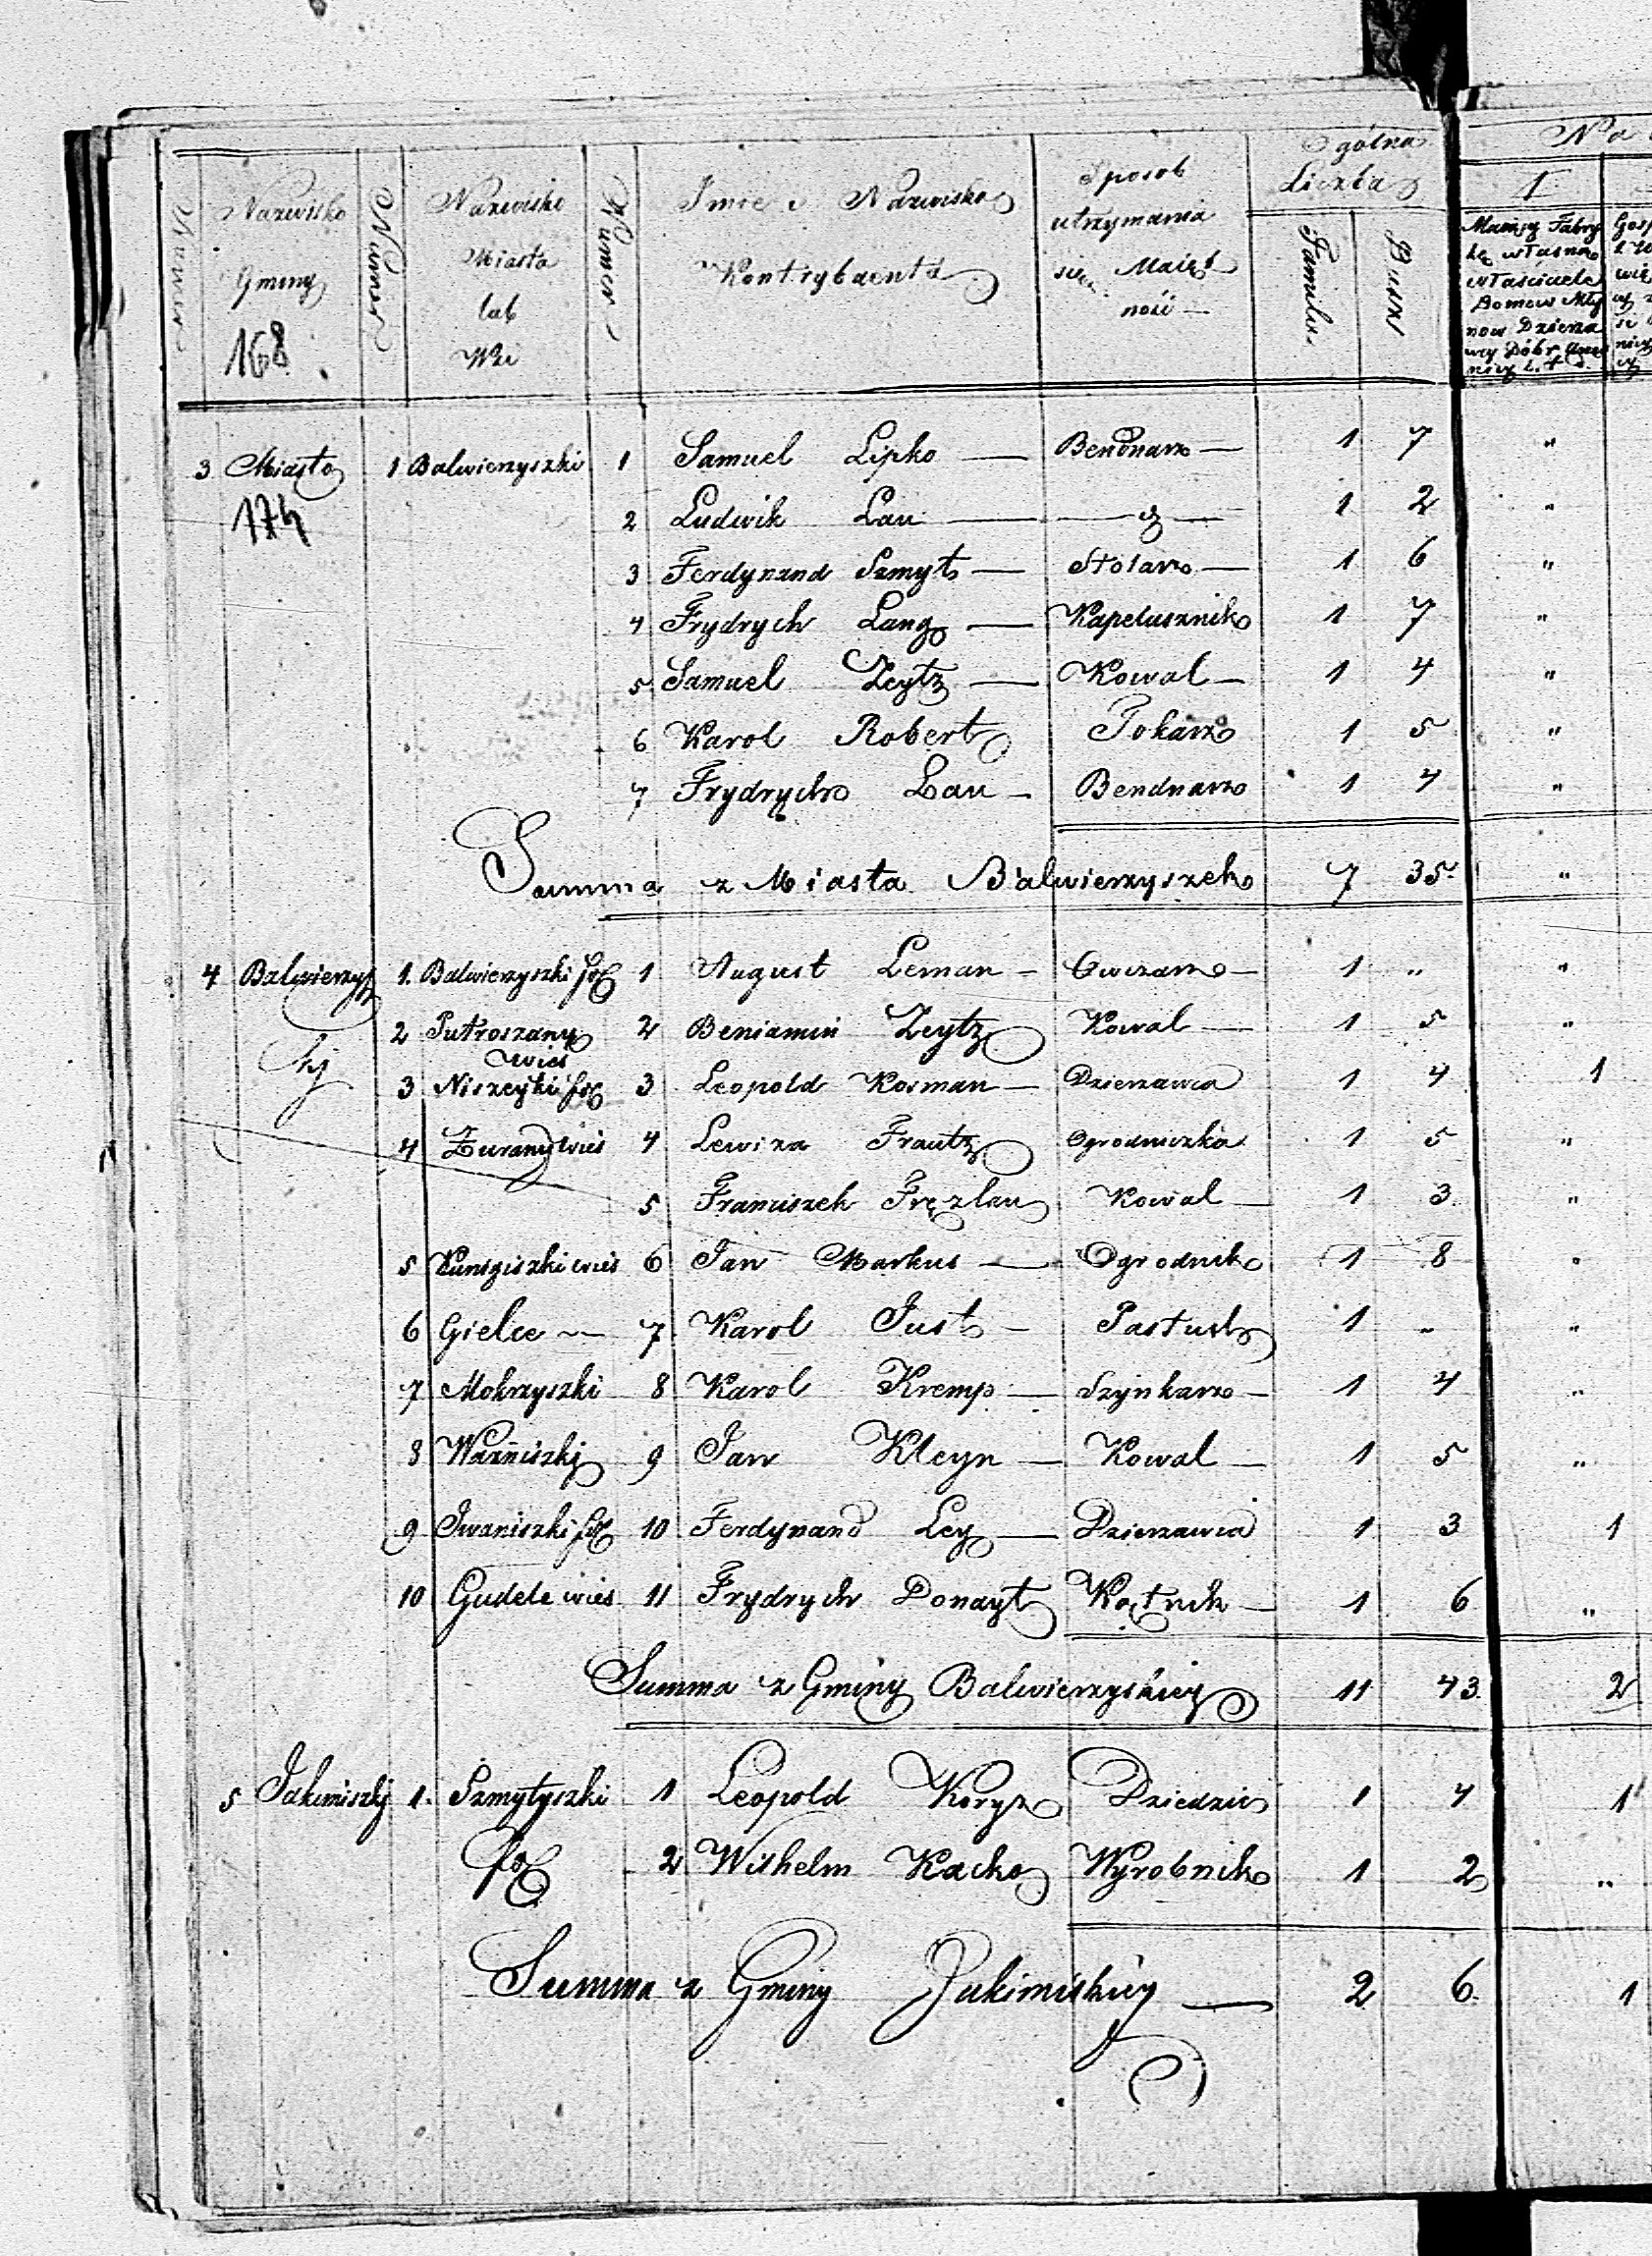 Numer Nazwisko Gminy Numer Nazwisko Miasta lub Wsi Numer Imie i Nazwisko Kontrybuenta Sposob utrzymania się Maięt ność Ogólna Liczba Familii Dusz
168
1
Maiący Fabry
kę własną
właściciele
Domow Mły
now Dzierża
wcy Dóbr
3 Miasto 1 Balwierzyszki 1 Samuel Lipko — Bendnarz — 1 7 "
174
2 Ludwik Lau — — 1 2 "
3 Ferdynand Szmyt — Stolarz — 1 6 "
4 Frydrych Lang — Kapelusznik 1 7 "
5 Samuel Zeytz — Kowal — 1 4 "
6 Karol Robert Tokarz 1 5 "
7 Frydrych Lau — Bendnarz 1 4 "
Summa z Miasta Balwierzyszek 7 35 "
4 Balwierzys 1. Balwierzyszki fol 1 August Leman — Owczarz — 1 " "
kj 2 Putroszany wieś 2 Beniamin Zeytz Kowal — 1 5 "
3 Niszeyki fol 3 Leopold Kosman — Dzierzawca 1 4 1
4 Zurany wieś 4 Lewiza Frautz Ogrodniczka 1 5 "
5 Franciszek Fręzlau Kowal — 1 3 "
5 Kunigiszki wieś 6 Jan Markus — Ogrodnik 1 8 "
6 Gielce — 7 Karol Just — Pastuch 1 " "
7 Mokrzyszki 8 Karol Kremp — Szynkarz — 1 4 "
8 Ważniszki 9 Jan Kleyn — Kowal — 1 5 "
9 Iwaniszki fol 10 Ferdynand Ley — Dzierzawca 1 3 1
10 Gudele wieś 11 Frydrych Donayt Kątnik — 1 6 "
Summa z Gminy Balwierzyskiey 11 43 2
5 Jakimiszki 1. Szmytyszki 1 Leopold Koryz Dziedzic 1 4 1
fol 2 Wilhelm Kacko Wyrobnik 1 2 "
Summa z Gminy Jakimiskiey — 2 6 1